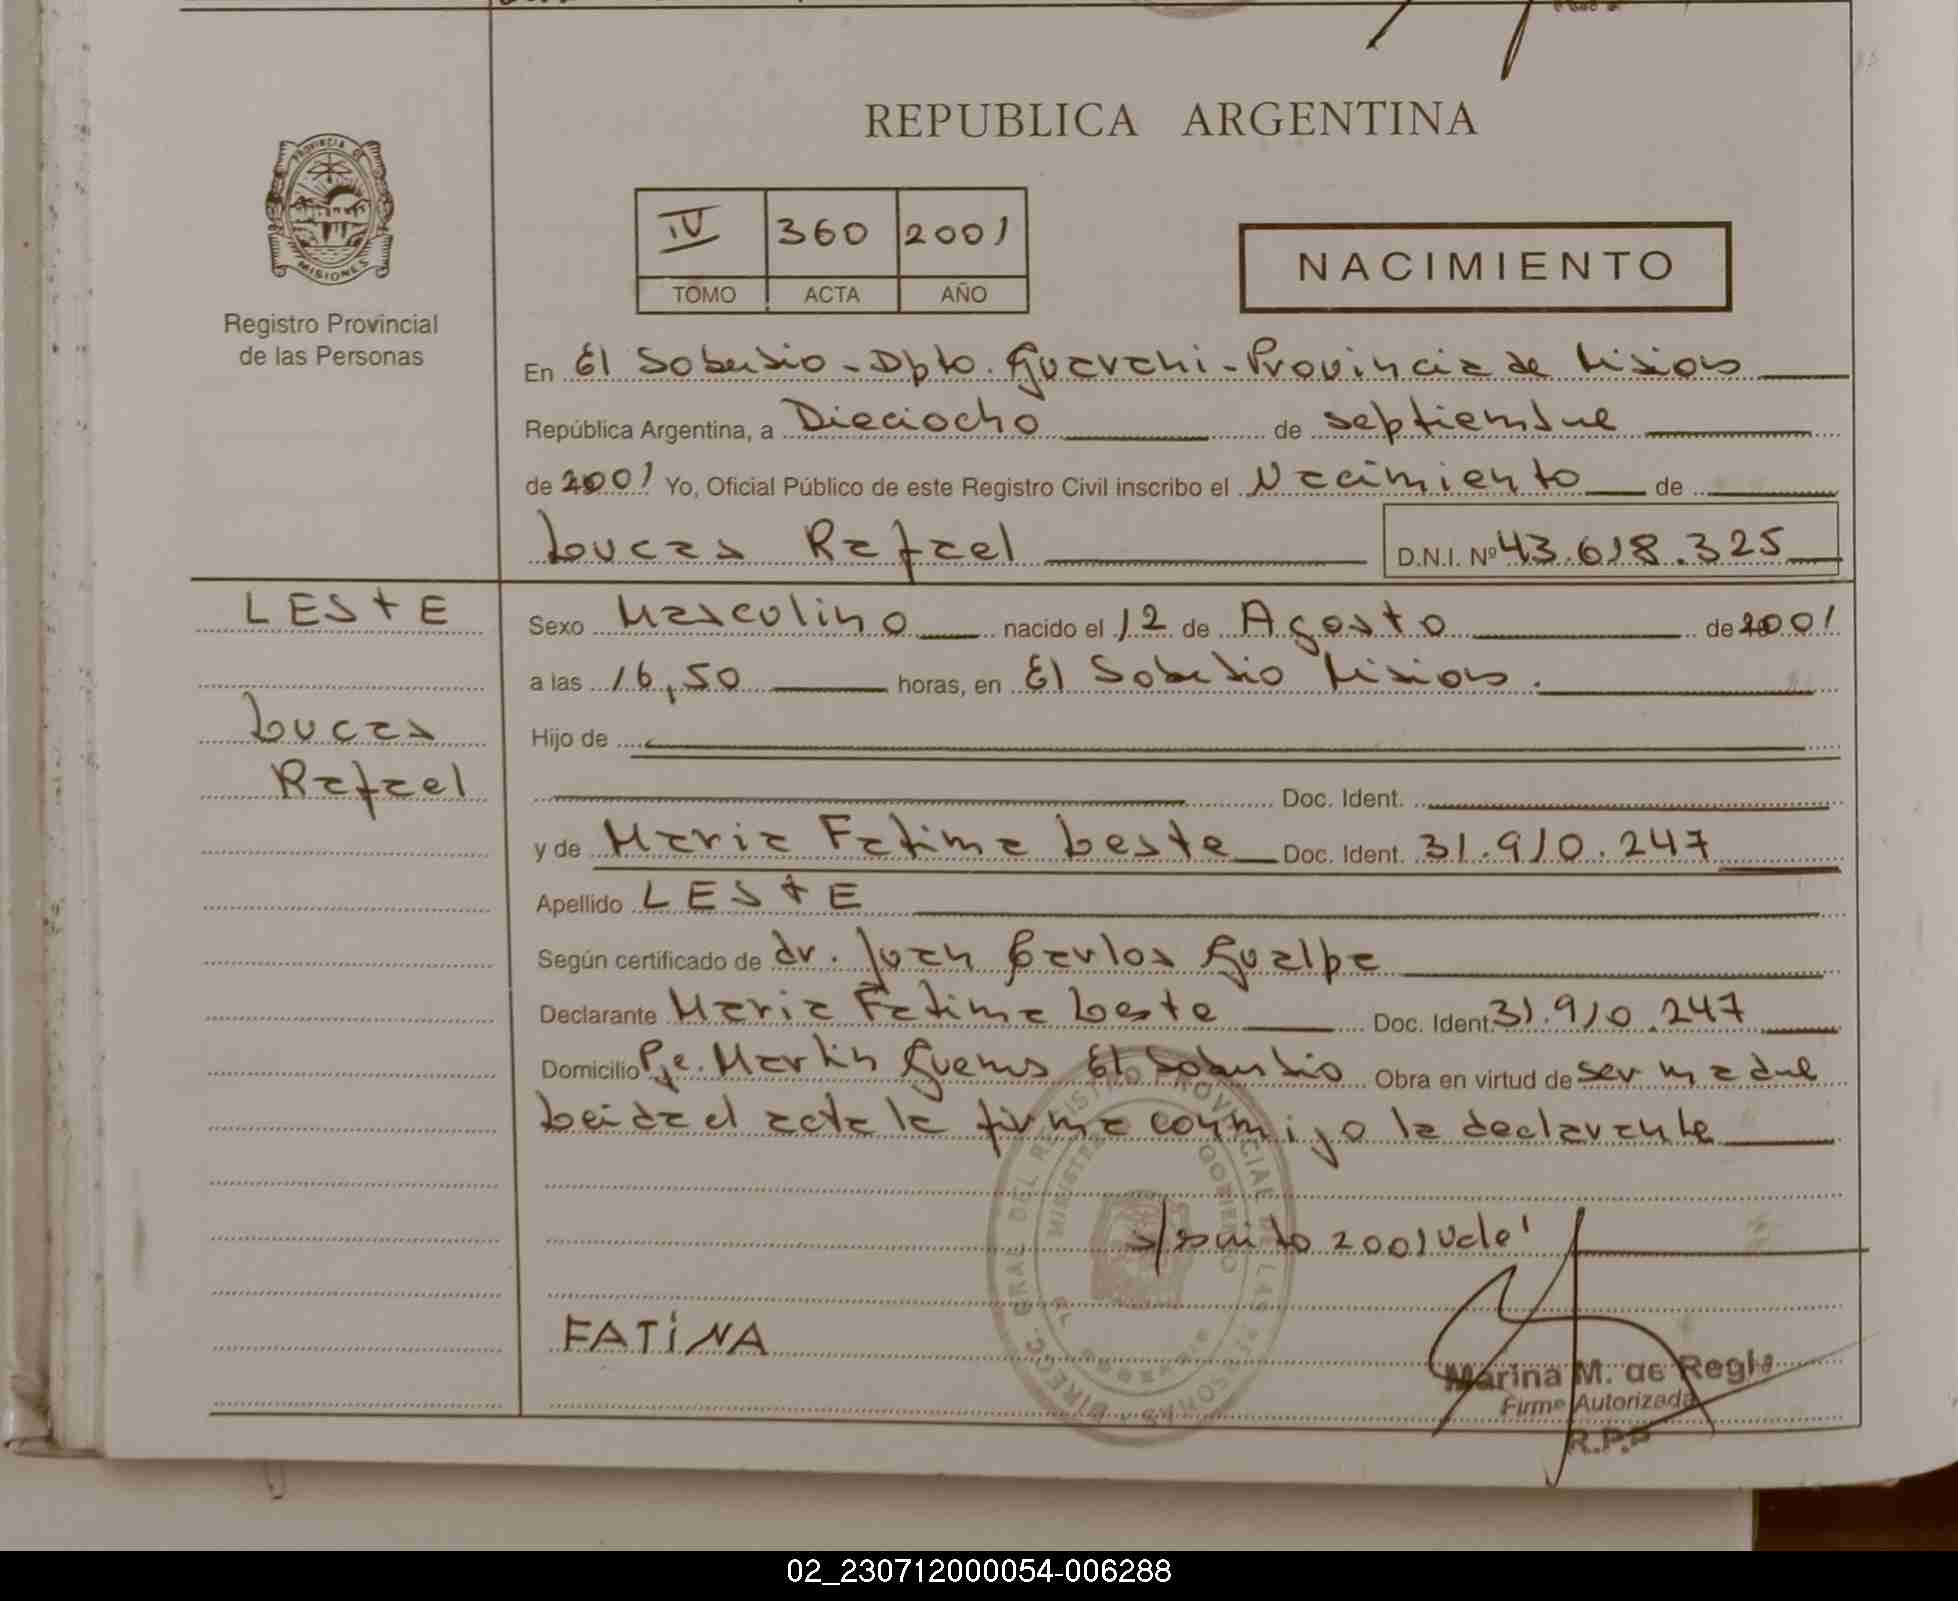 REPUBLICA ARGENTINA
PROVINCIA DE
MISIONES
Registro Provincial
de las Personas
IV 360 2001
TOMO ACTA AÑO
NACIMIENTO
En El Soberbio - Dpto. Guarani - Provincia de Misiones
República Argentina, a Dieciocho de septiembre
de 2001 Yo, Oficial Público de este Registro Civil inscribo el Nacimiento de
Lucas Rafael D.N.I. Nº 43.618.325
LESTE
Lucas
Rafael
Sexo Masculino nacido el 12 de Agosto de 2001
a las 16,50 horas, en El Soberbio Misiones.
Hijo de
Doc. Ident.
y de Maria Fatima Leste Doc. Ident. 31.910.247
Apellido LESTE
Según certificado de dr. Juan Carlos Gualpa
Declarante Maria Fatima Leste Doc. Ident. 31.910.247
Domicilio Pje. Martin Guemes El Soberbio Obra en virtud de ser madre
Leida el acta la firma conmigo la declarante
s/escrito 2001 Vale
FATiNA
Marina M. de Regis
Firma Autorizada
R.P.P
02_230712000054-006288